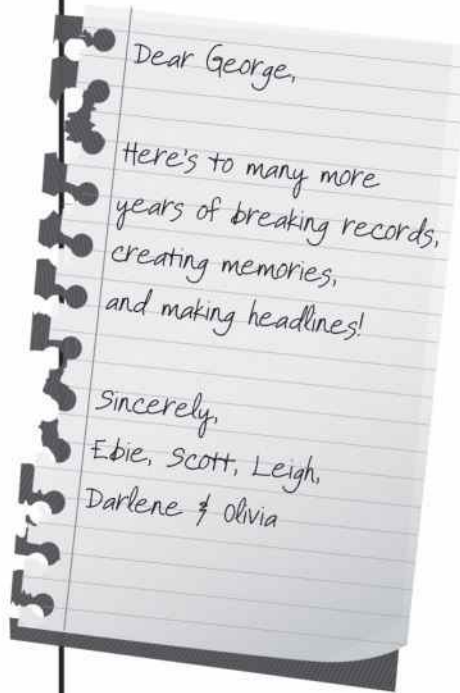 Dear George,
Here's to many more
years of breaking records,
creating memories,
and making headlines!
Sincerely,
Ebie, Scott, Leigh,
Darlene & Olivia